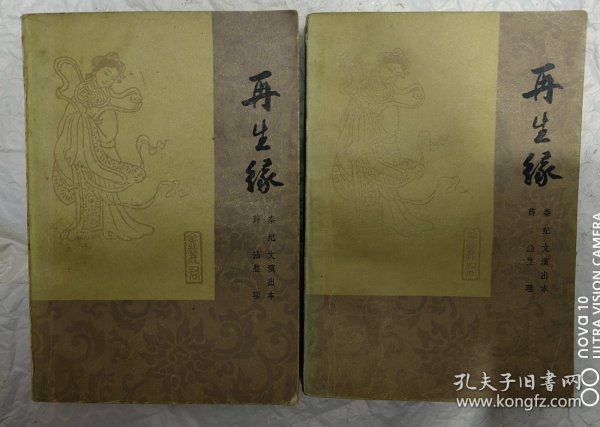 再生缘
秦纪文演出本
蒋 汕整 理
孟丽君
再生缘
秦纪文演出本
蒋 汕整 理
nova 10
ULTRA VISION CAMERA
孔夫子旧书网
www.kongfz.com